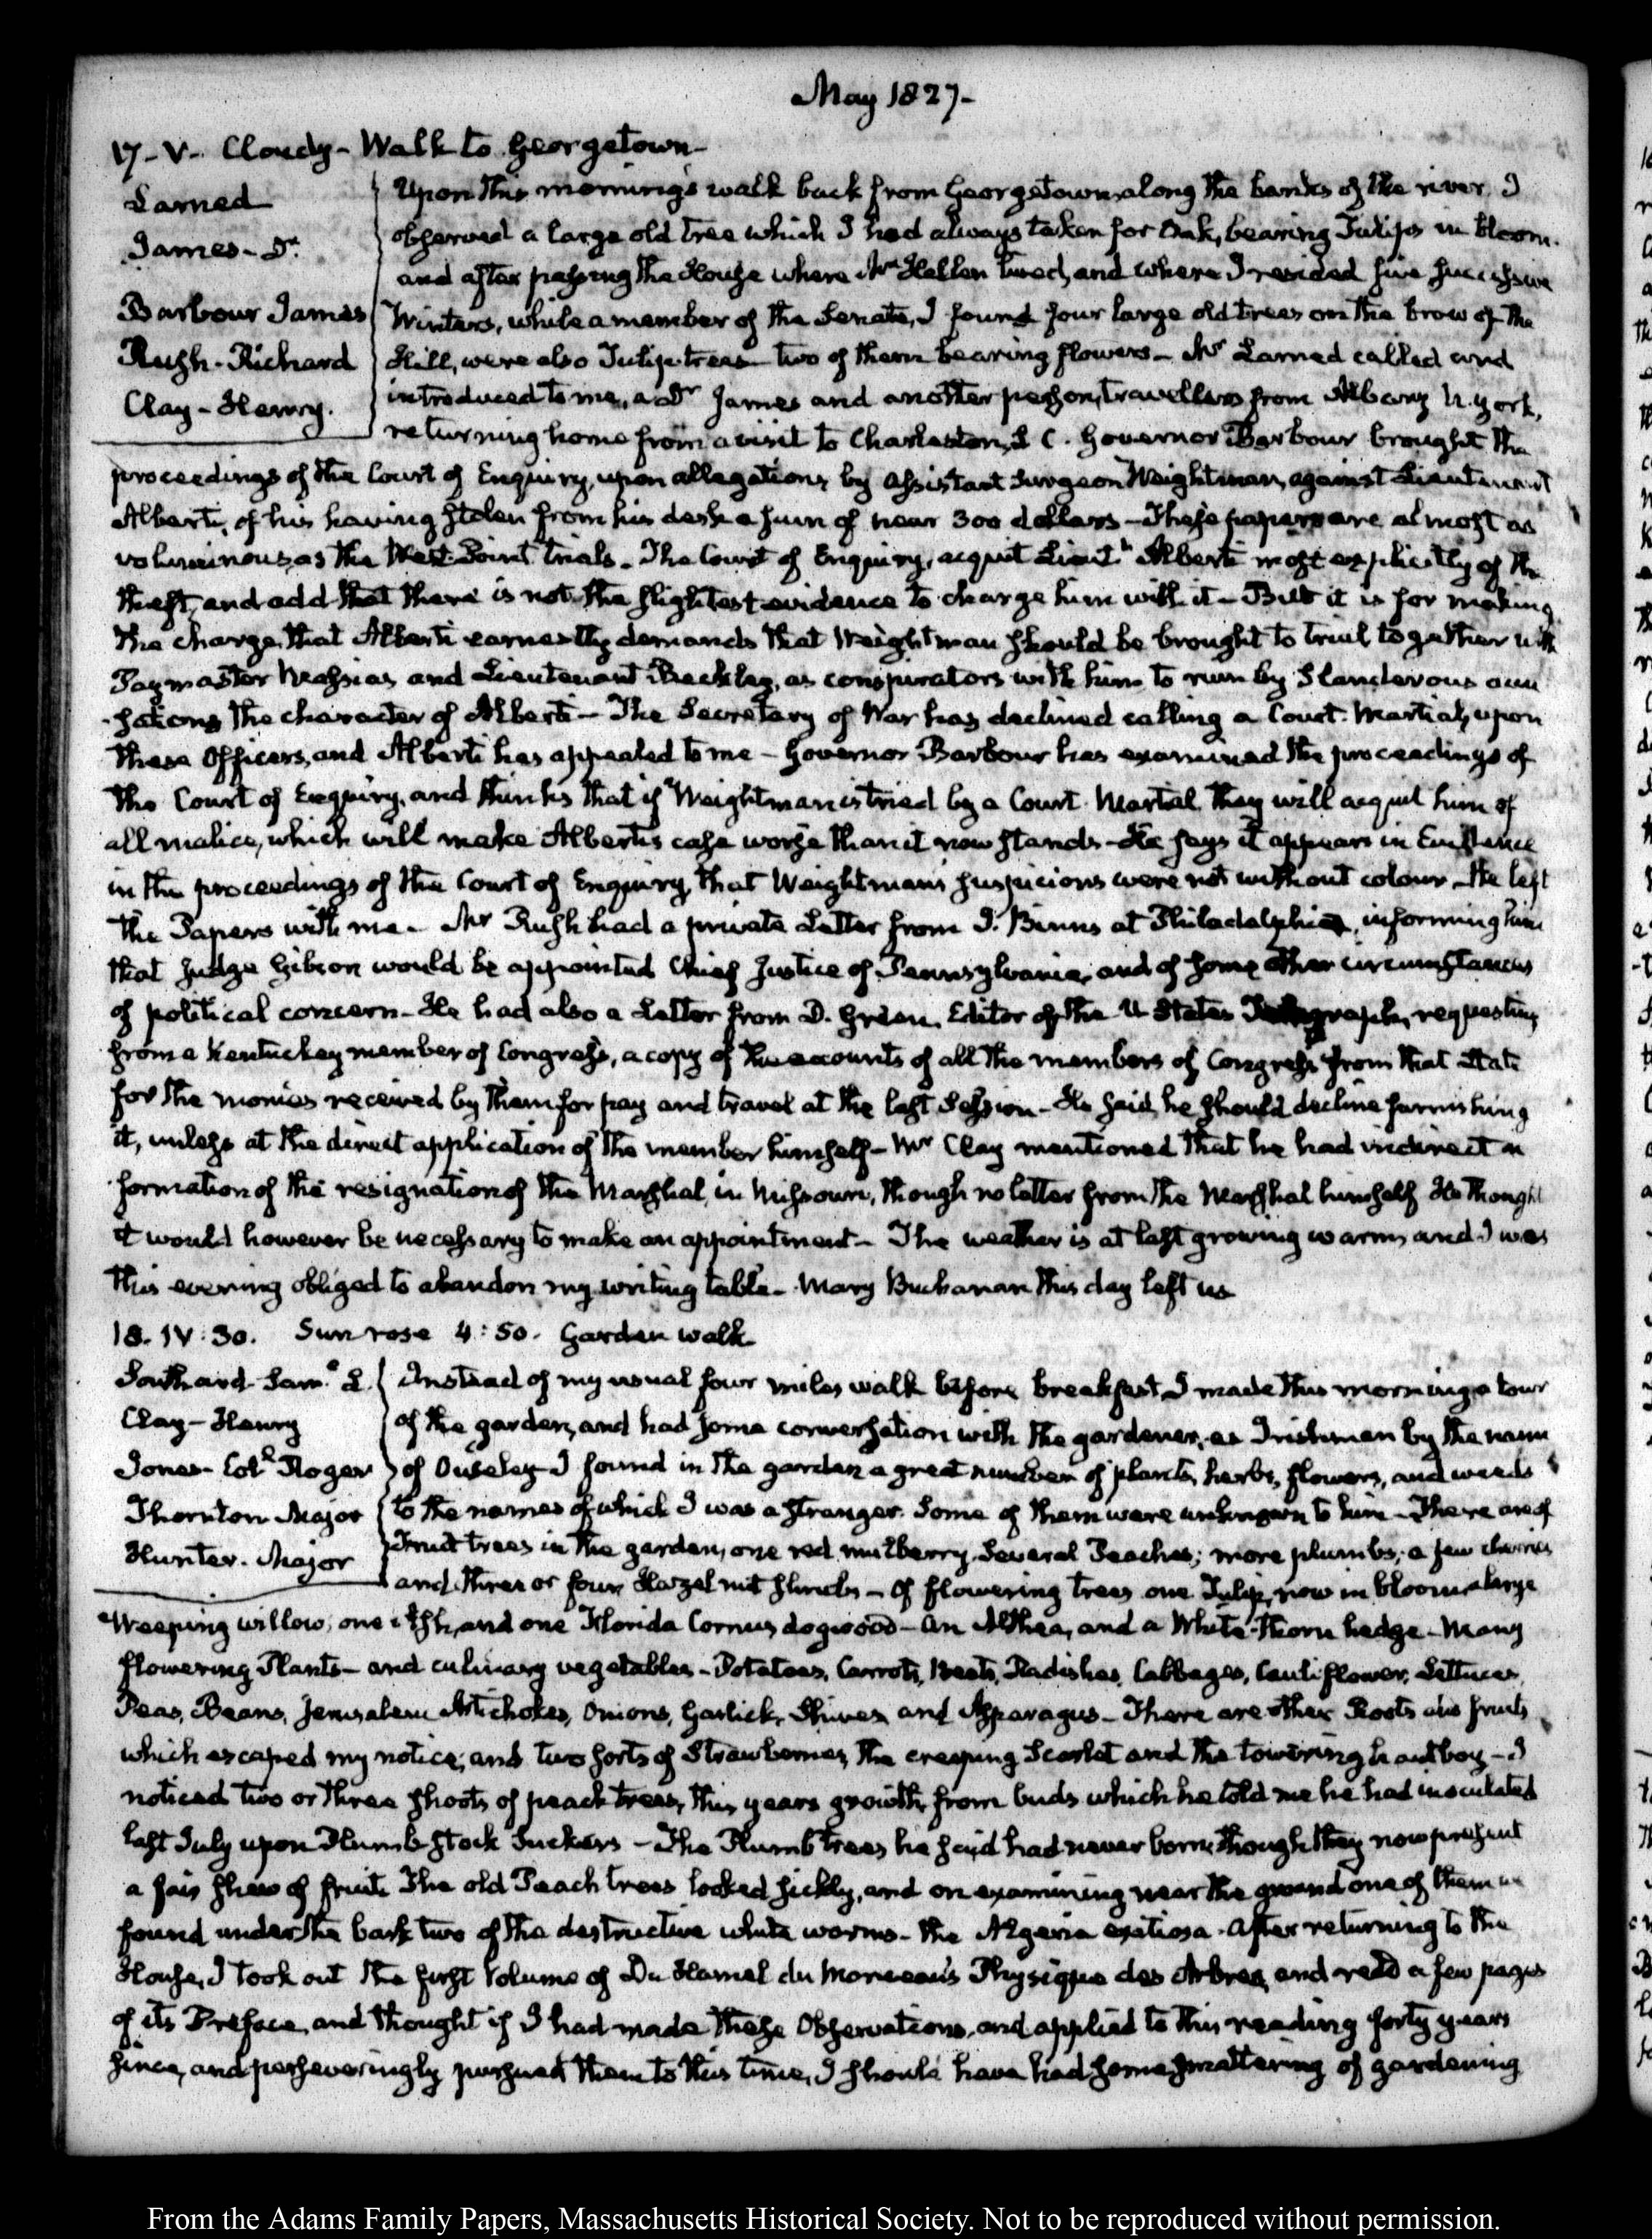 May 1827-
17-V- Cloudy- Walk to Georgetown-
Larned
James- Dr.
Barbour James
Rush- Richard
Clay- Henry.
Upon this morning's walk back from Georgetown, along the banks of the river, I
observed a large old tree which I had always taken for Oak, bearing Tulips in bloom.
and after passing the House where Mr Hellen lived, and where I resided five successive
Winters, while a member of the Senate, I found four large old trees on the brow of the
Hill, were also Tulip-trees- two of them bearing flowers- Mr Larned called and
introduced to me, a Dr James and another person, travellers from Albany N. York,
returning home from a visit to Charleston, S C. Governor Barbour brought the
proceedings of the Court of Enquiry, upon allegations by Assistant Surgeon Weightman, against Lieutenant
Alberti, of his having stolen from his desk a sum of near 300 dollars- These papers are almost as
voluminous, as the West-Point trials. The Court of Enquiry, acquit Lieutt Alberti most explicitly of the
theft, and add that there is not the slightest evidence to charge him with it- But it is for making
the charge, that Alberti earnestly demands that Weightman should be brought to trial together with
Paymaster Massias and Lieutenant Beckley, as conspirators with him to ruin by slanderous accu
sations the character of Alberti- The Secretary of War has declined calling a Court-Martial, upon
these Officers, and Alberti has appealed to me- Governor Barbour has examined the proceedings of
the Court of Enquiry, and thinks that if Weightman is tried by a Court-Martial they will acquit him of
all malice, which will make Alberti's case worse than it now stands- He says it appears in Evidence
in the proceedings of the Court of Enquiry, that Weightman's suspicions were not without colour- He left
the Papers with me- Mr Rush had a private Letter from J. Binns at Philadelphia, informing him
that Judge Gibson would be appointed Chief Justice of Pennsylvania, and of some other circumstances
of political concern- He had also a Letter from D. Green, Editor of the U States Telegraph, requesting
from a Kentuckey member of Congress, a copy of the accounts of all the members of Congress from that State
for the monies received by them for pay and travel at the last Session- He said, he should decline furnishing
it, unless at the direct application of the member himself- Mr Clay mentioned that he had indirect in
formation of the resignation of the Marshal, in Missouri, though no letter from the Marshal himself He thought
it would however be necessary to make an appointment- The weather is at last growing warm, and I was
this evening obliged to abandon my writing table- Mary Buchanan this day left us
18. IV:30. Sun rose 4:50. Garden walk
Southard- Saml L.
Clay- Henry
Jones- Coll Roger
Thornton- Major
Hunter- Major
Instead of my usual four miles walk before breakfast, I made this morning a tour
of the garden, and had some conversation with the gardener, an Irishman by the name
of Ouseley- I found in the garden a great number of plants, herbs, flowers, and weeds
to the names of which I was a stranger. Some of them were unknown to him- There are of
Fruit trees in the garden, one red mulberry, several Peaches; more plumbs; a few cherries
and three or four Hazel nut shrubs- Of flowering trees one Tulip, now in bloom, a large
Weeping willow, one Ash, and one Florida Cornus, dogwood- an Althea, and a White-thorn hedge- Many
flowering Plants- and culinary vegetables- Potatoes, Carrots, Beets, Radishes, Cabbages, Cauliflower, Lettuces,
Peas, Beans, Jerusalem Artichokes, Onions, Garlick, Shives and Asparagus- There are other Roots and fruits
which escaped my notice; and two sorts of Strawberries, the creeping Scarlet and the towering hautboy- I
noticed two or three shoots of peach trees, this years growth, from buds which he told me he had inoculated
last July upon Plumb-stock Suckers- The Plumb trees he said had never borne though they now present
a fair shew of fruit. The old Peach trees looked sickly, and on examining near the ground one of them we
found under the bark two of the destructive white worms- the Algeria exitiosa- After returning to the
House, I took out the first Volume of Du Hamel du Monceau's Physique des Arbres, and read a few pages
of its Preface, and thought if I had made these Observations, and applied to this reading forty years
since, and perseveringly pursued them to this time, I should have had some smattering of gardening
From the Adams Family Papers, Massachusetts Historical Society. Not to be reproduced without permission.